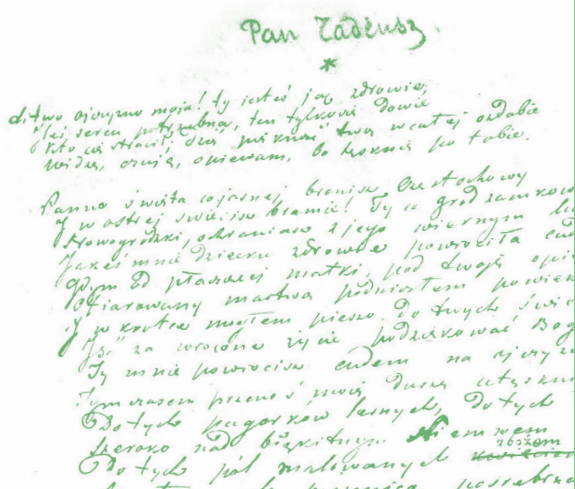 Pan Tadeusz.
*
Litwo ojczyzno moja! ty jesteś jak zdrowie,
Ileś sercu potrzebna, ten tylko się dowie
Kto cię stracił; dziś piękność twą w całej ozdobie
widzę, czuję, opiewam, bo tęsknię po tobie.
Panno święta co jasnej bronisz Częstochowy
I w ostrej świecisz bramie! Ty co gród zamkow
Nowogrodzki, ochraniasz z jego wiernym lu
Jakeś mnie dziecku zdrowie powróciła cud
Gdym od płaczącej matki, pod twoją opie
Ofiarowany martwą podniosłem powiek
I w krotce mogłem pieszo do twych świą
Iść za wrócone życie podziękować Bog
Ty mnie powrócisz cudem na ojczyz
Tymczasem przenoś moją duszę utęsknio
Do tych pagorków leśnych, do tych
szeroko nad błękitnym Niemnem
Do tych pól malowanych zbożem